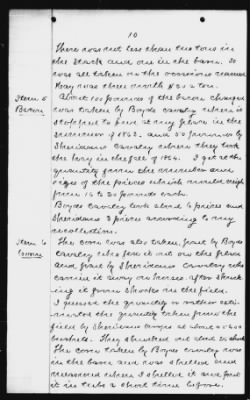 10
There was not less than two tons in
the stack and one in the barn. It
was all taken on the occasions named
Hay was then worth $20 a ton.
Item 5
Bacon
About 100 pounds of the bacon charged
was taken by Boyds cavalry when it
stopped to feed at my place in the
summer of 1863. and 50 pounds by
Sheridans Cavalry when they took
the hay in the fall of 1864. I get at the
quantity from the number and
size of the pieces which would weigh
from 15 to 20 pounds each.
Boyds Cavalry took about 6 pieces and
Sheridans 3 pieces according to my
recollection.
Item 6
Corn
The corn was also taken, part by Boyds
Cavalry who fed it out on the place
and part by Sheridans Cavalry who
carried it away on horses after
it from shocks in the field.
I guessed the quantity or rather
the quantity taken from the
field by Sheridans troops at about
bushels. They shucked out
The corn taken by Boyds Cavalry was
in the barn and was shelled and
measured when I shelled it and put
it in tubs a short time before.